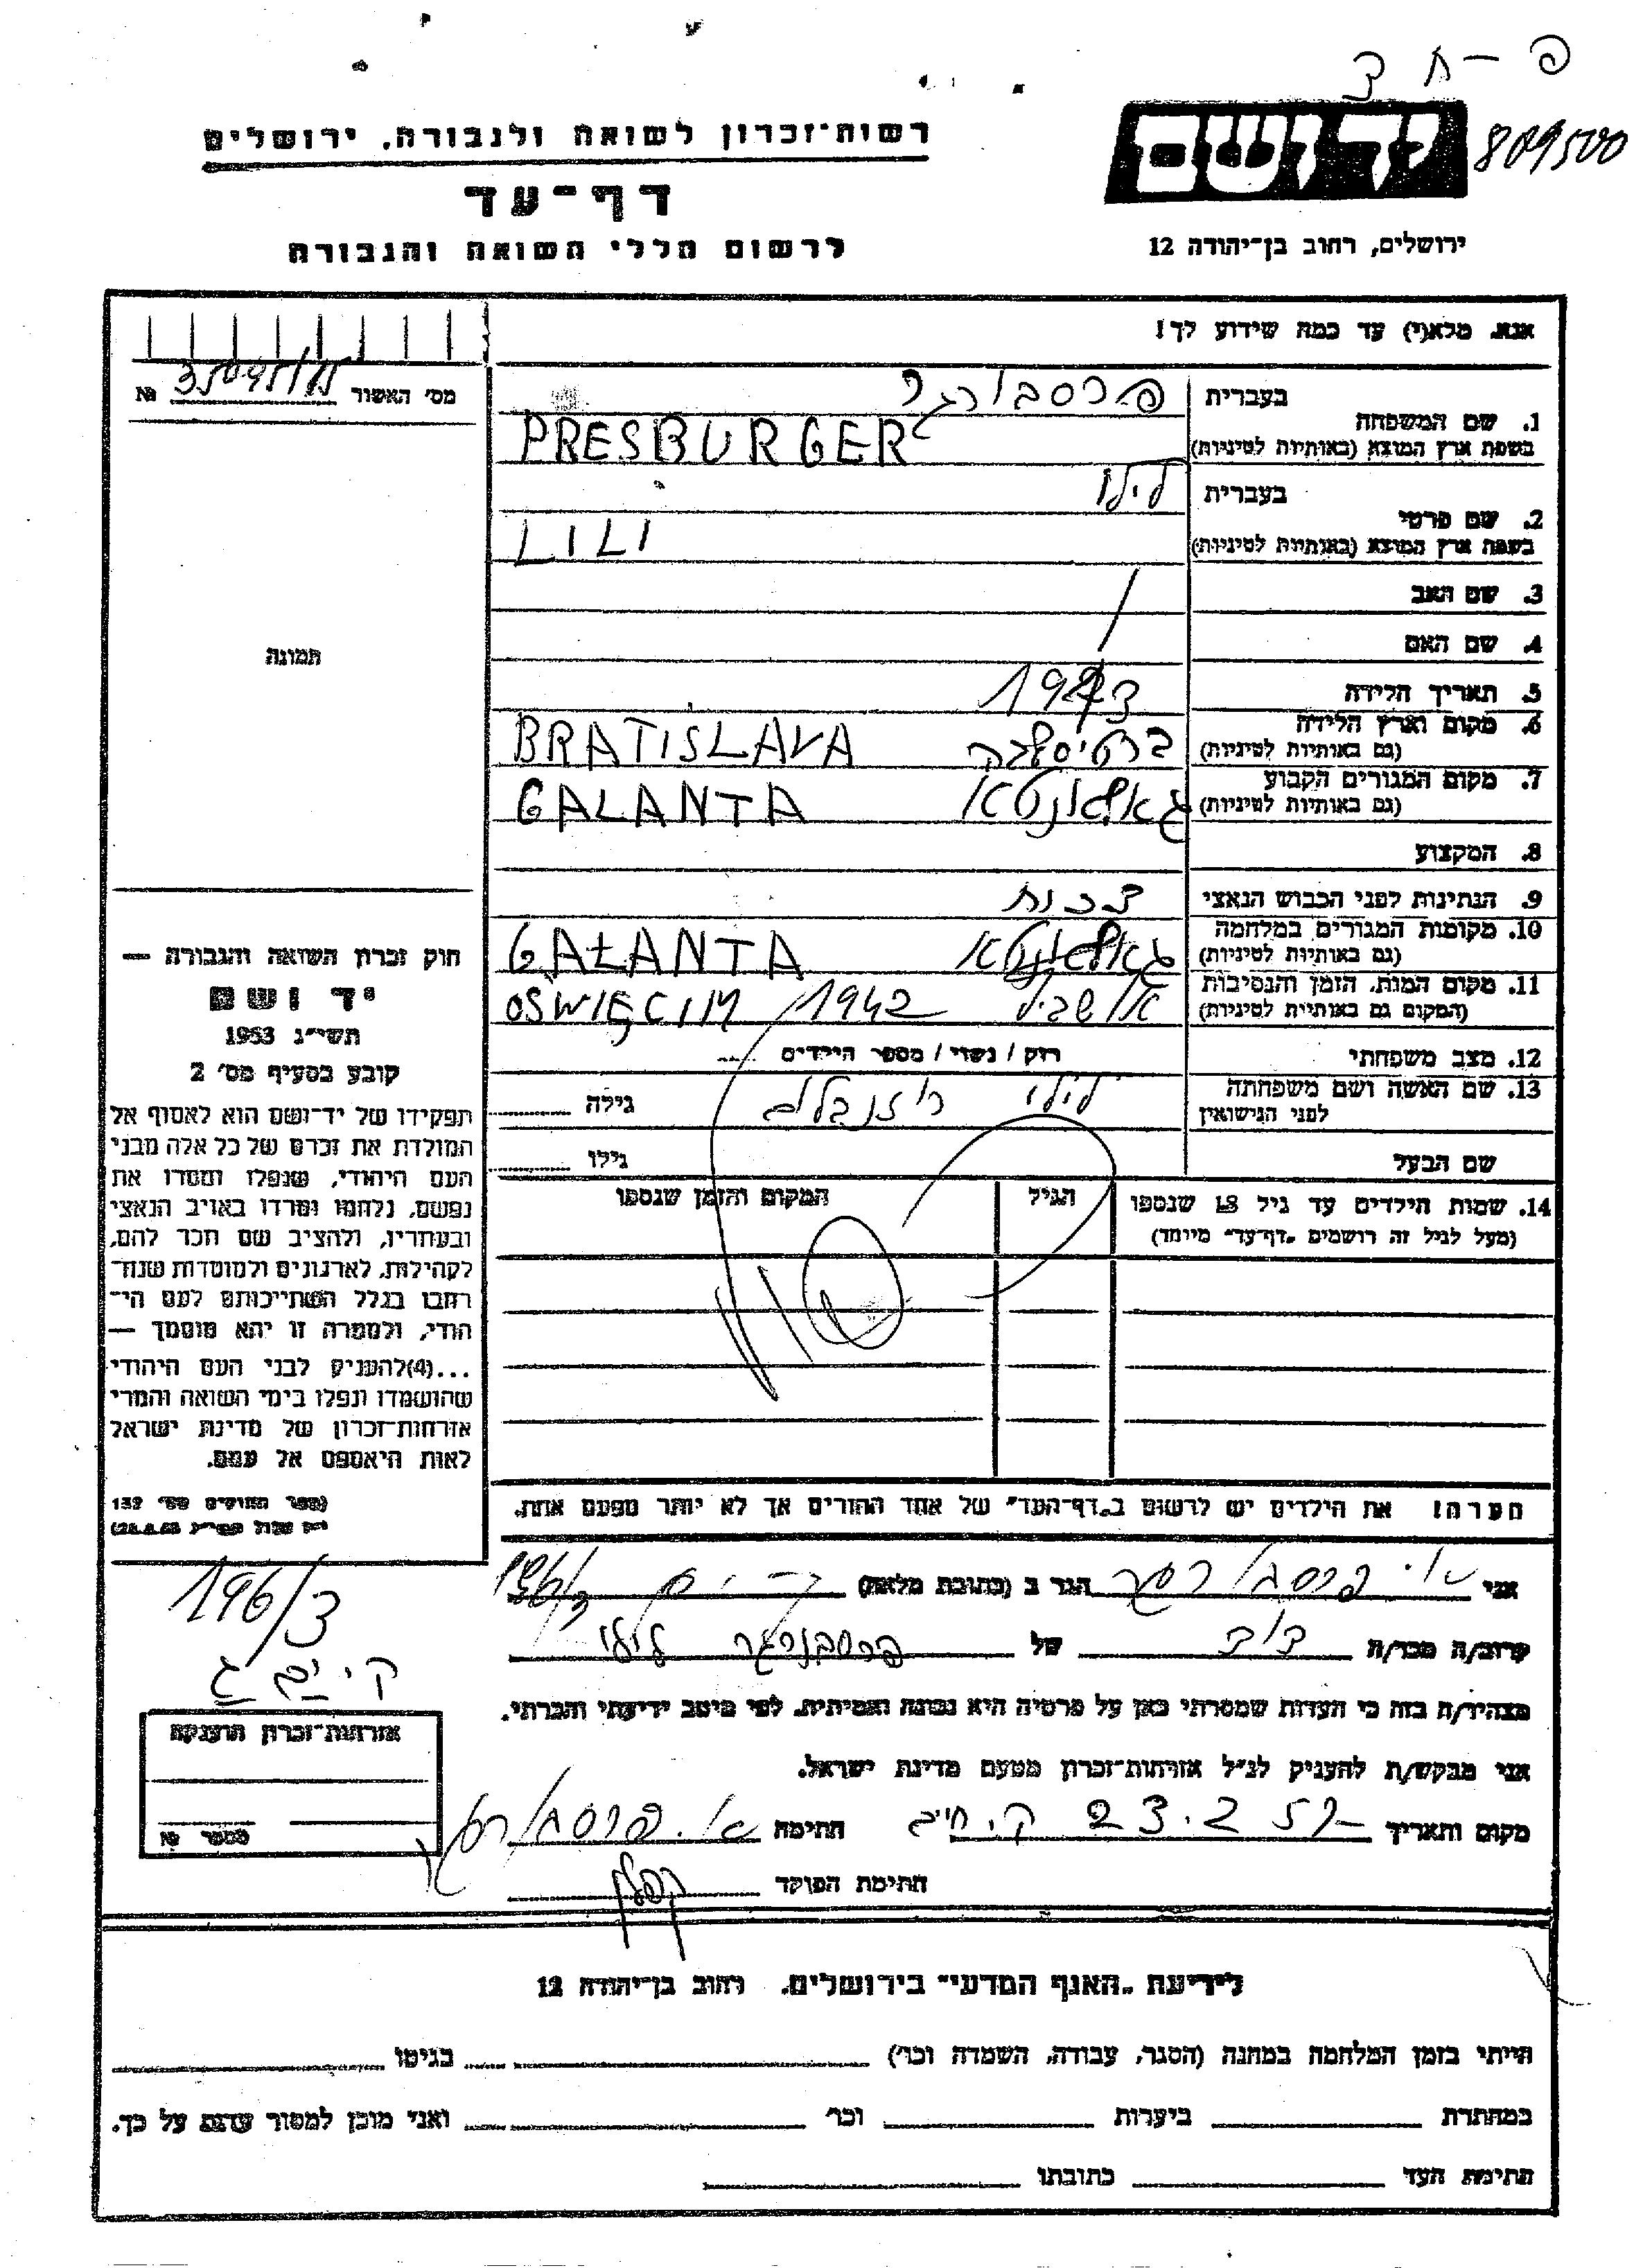 פ - ח צ
רשות־זכרון לשואה ולגבורה, ירושלים
דף־עד
לרשום חללי השואה והגבורה
יד ושם
809500
ירושלים, רחוב בן־יהודה 12
אנא, מלא(י) עד כמה שידוע לך!
מס' האשור № 35095/15
1. שם המשפחה
בעברית פרסבורגר
בשפת ארץ המוצא (באותיות לטיניות) PRESBURGER
2. שם פרטי
בעברית לילי
בשפת ארץ המוצא (באותיות לטיניות) LILI
3. שם האב
4. שם האם
תמונה
5. תאריך הלידה
6. מקום וארץ הלידה
(גם באותיות לטיניות) ברטיסלבה BRATISLAVA
7. מקום המגורים הקבוע
(גם באותיות לטיניות) גאלאנטא GALANTA
8. המקצוע
9. הנתינות לפני הכבוש הנאצי צכות
10. מקומות המגורים במלחמה
(גם באותיות לטיניות) גאלאנטא GAŁANTA
11. מקום המות, הזמן והנסיבות
(המקום גם באותיות לטיניות) 1942 OSWIĘCIM
12. מצב משפחתי רווק / נשוי / מספר הילדים
13. שם האשה ושם משפחתה
לפני הנישואין לילי גילה
שם הבעל גילו
14. שמות הילדים עד גיל 18 שנספו
(מעל לגיל זה רושמים "דף־עד" מיוחד)
הגיל
המקום והזמן שנספו
חוק זכרון השואה והגבורה —
יד ושם
תשי"ג 1953
קובע בסעיף מס' 2
תפקידו של יד־ושם הוא לאסוף אל
המולדת את זכרם של כל אלה מבני
העם היהודי, שנפלו ומסרו את
נפשם, נלחמו ומרדו באויב הנאצי
ובעוזריו, ולהציב שם וזכר להם,
לקהילות, לארגונים ולמוסדות שנח־
רבו בגלל השתייכותם לעם הי־
הודי, ולמטרה זו יהא מוסמך —
...(4)להעניק לבני העם היהודי
שהושמדו ונפלו בימי השואה והמרי
אזרחות־זכרון של מדינת ישראל
לאות היאספם אל עמם.
(ספר החוקים מס' 132
הערה! את הילדים יש לרשום ב"דף־העד" של אחד ההורים אך לא יותר מפעם אחת.
אני הגר ב (כתובת מלאה)
קרוב/ה מכר/ה דוד של פרסבורגר לילי
מצהיר/ה בזה כי העדות שמסרתי כאן על פרטיה היא נכונה ואמיתית, לפי מיטב ידיעתי והכרתי.
אני מבקש/ת להעניק לנ"ל אזרחות־זכרון מטעם מדינת ישראל.
מקום ותאריך חתימה
חתימת הפוקד
196/3
אזרחות־זכרון הוענקה
מספר №
לידיעת "האגף המדעי" בירושלים, רחוב בן־יהודה 12
הייתי בזמן המלחמה במחנה (הסגר, עבודה, השמדה וכו') בגיטו
במחתרת ביערות וכו' ואני מוכן למסור עדות על כך.
חתימת העד כתובתו